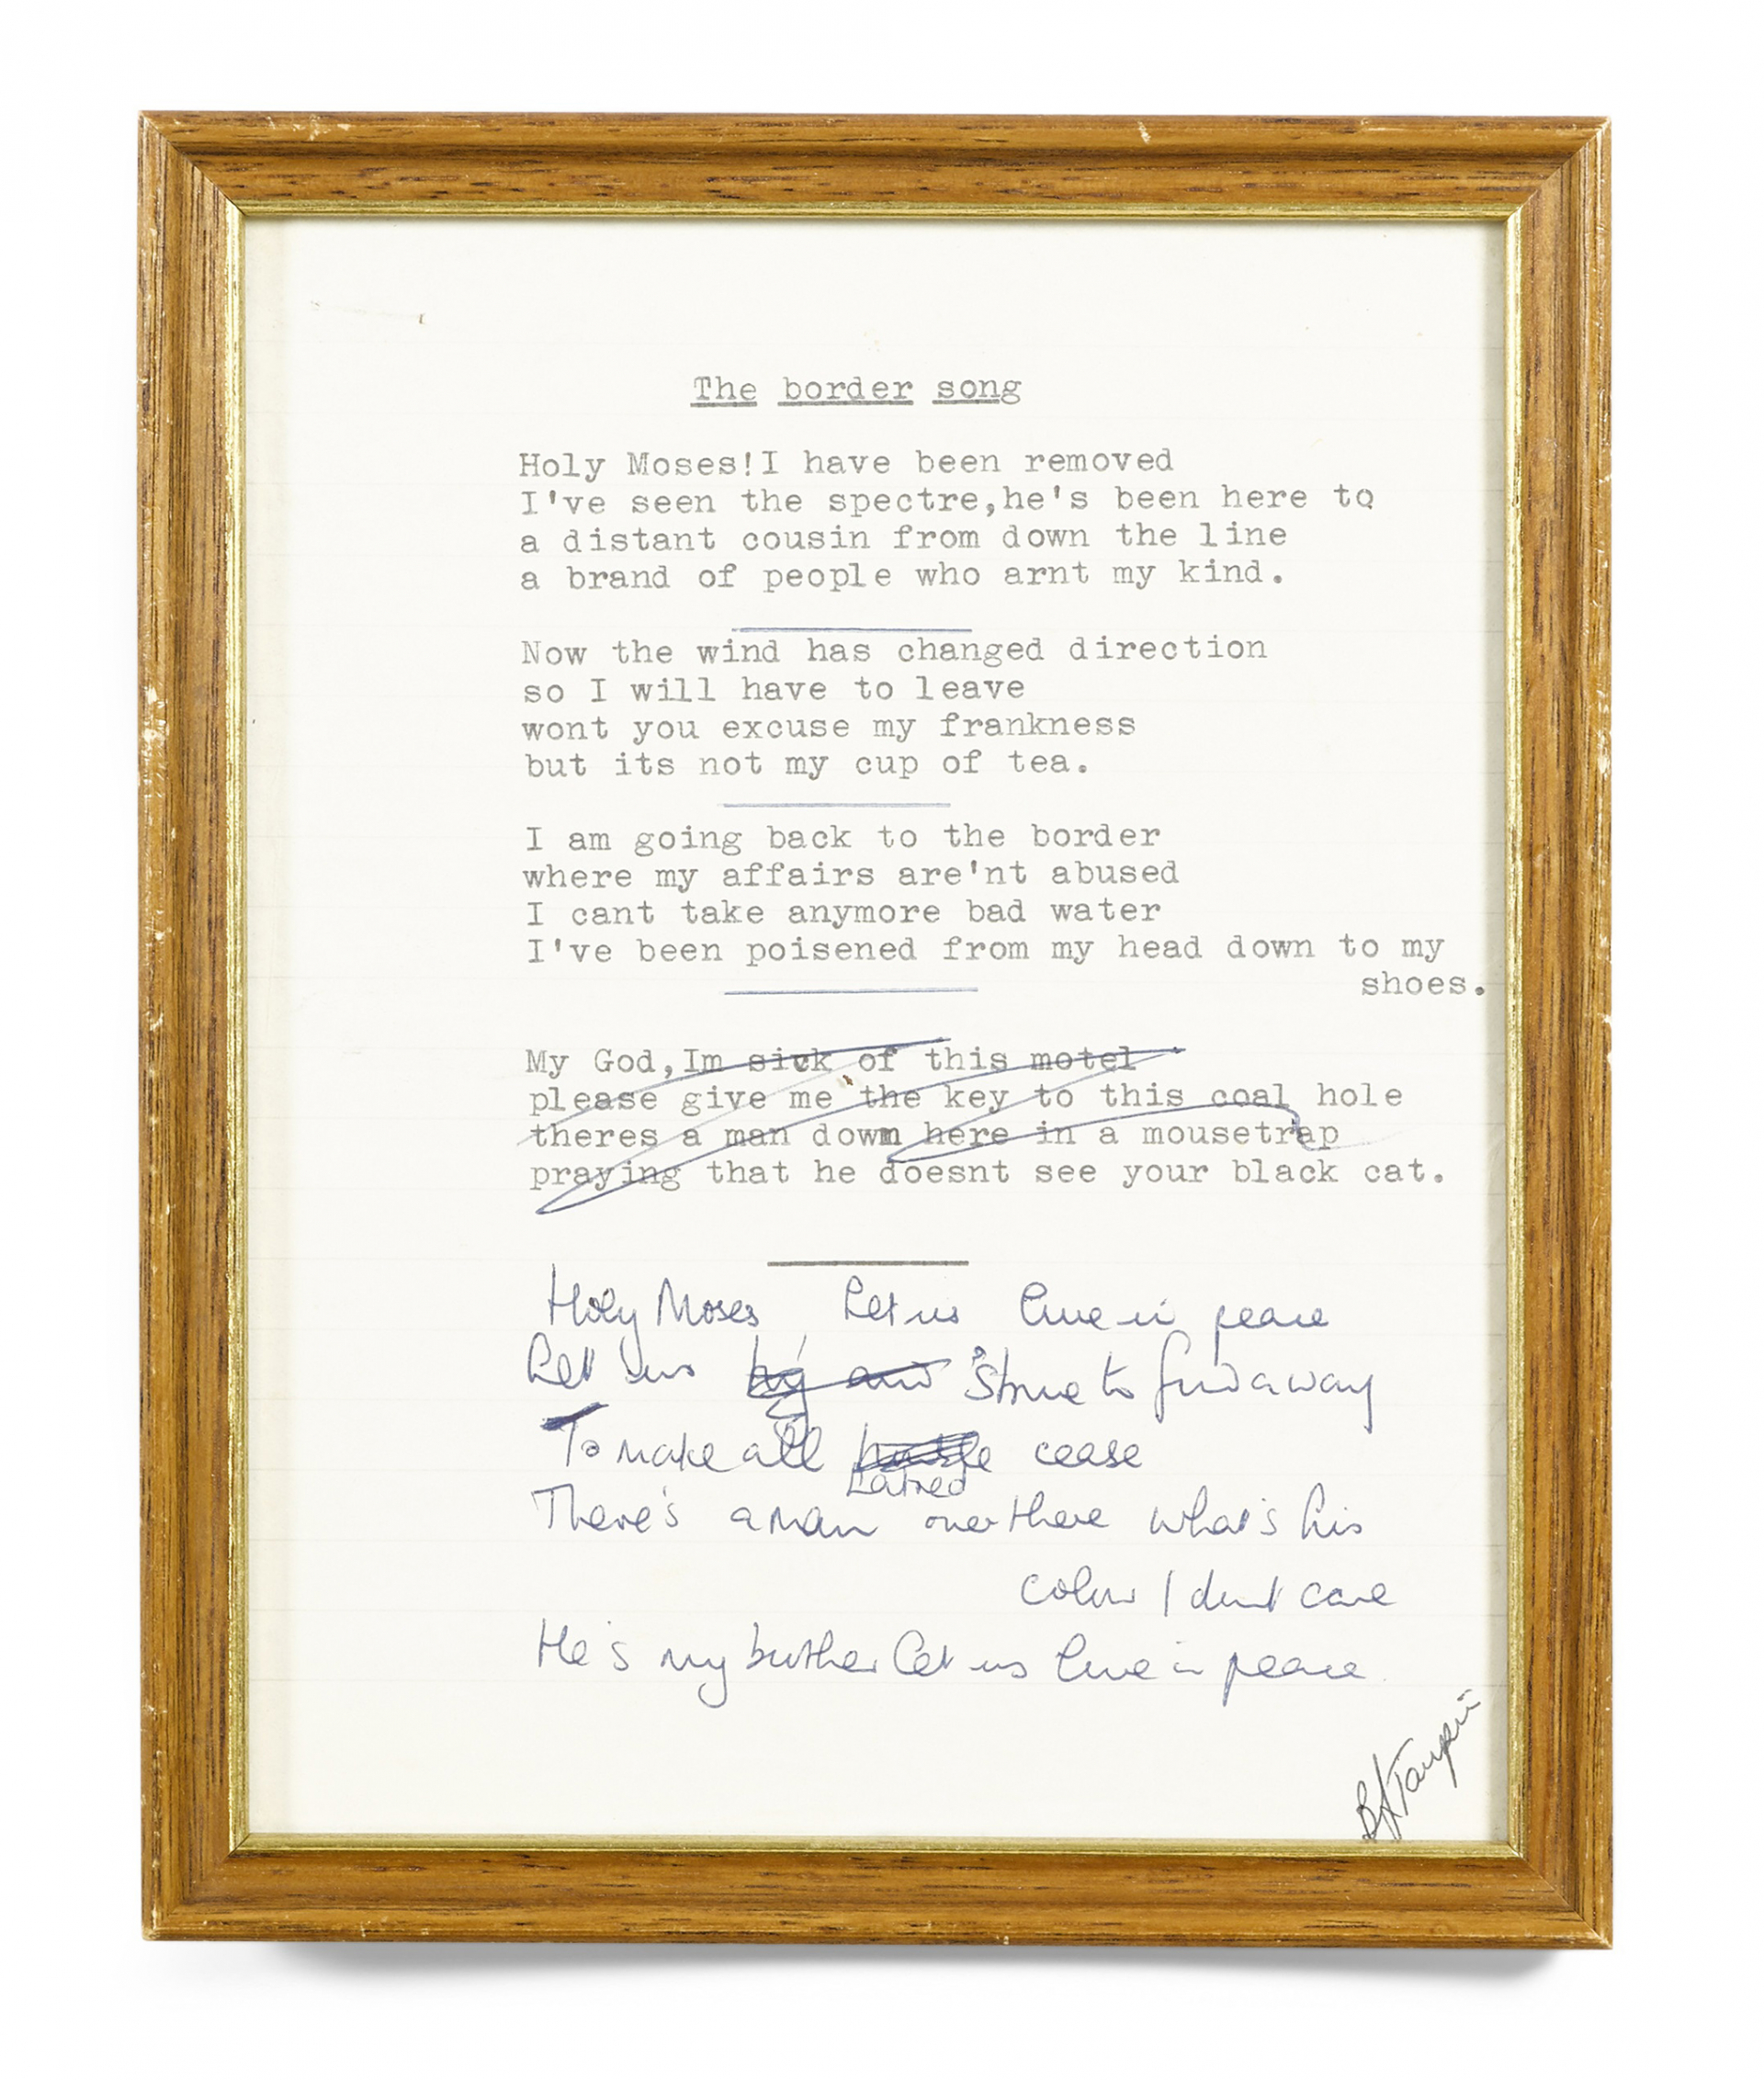 The border song
Holy Moses!I have been removed
I've seen the spectre,he's been here to
a distant cousin from down the line
a brand of people who arnt my kind.
Now the wind has changed direction
so I will have to leave
wont you excuse my frankness
but its not my cup of tea.
I am going back to the border
where my affairs are'nt abused
I cant take anymore bad water
I've been poisened from my head down to my
shoes.
My God,Im sick of this motel
please give me the key to this coal hole
theres a man down here in a mousetrap
praying that he doesnt see your black cat.
Holy Moses Let us live in peace
Let us try and strive to find a way
To make all cease
hatred
There's a man over there what's his
colour I dont care
He's my brother let us live in peace
B J Taupin